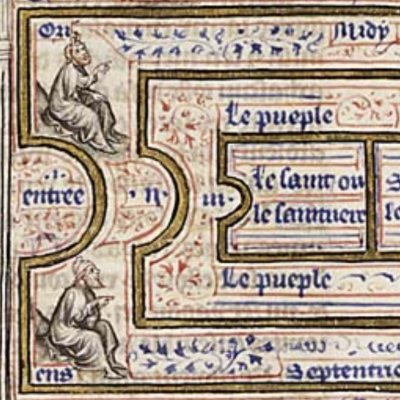 Ori
Midy
le pueple
.i.
entree
.ii.
.iii.
le saint ou
le saintuere
le pueple
ens
Septentrio